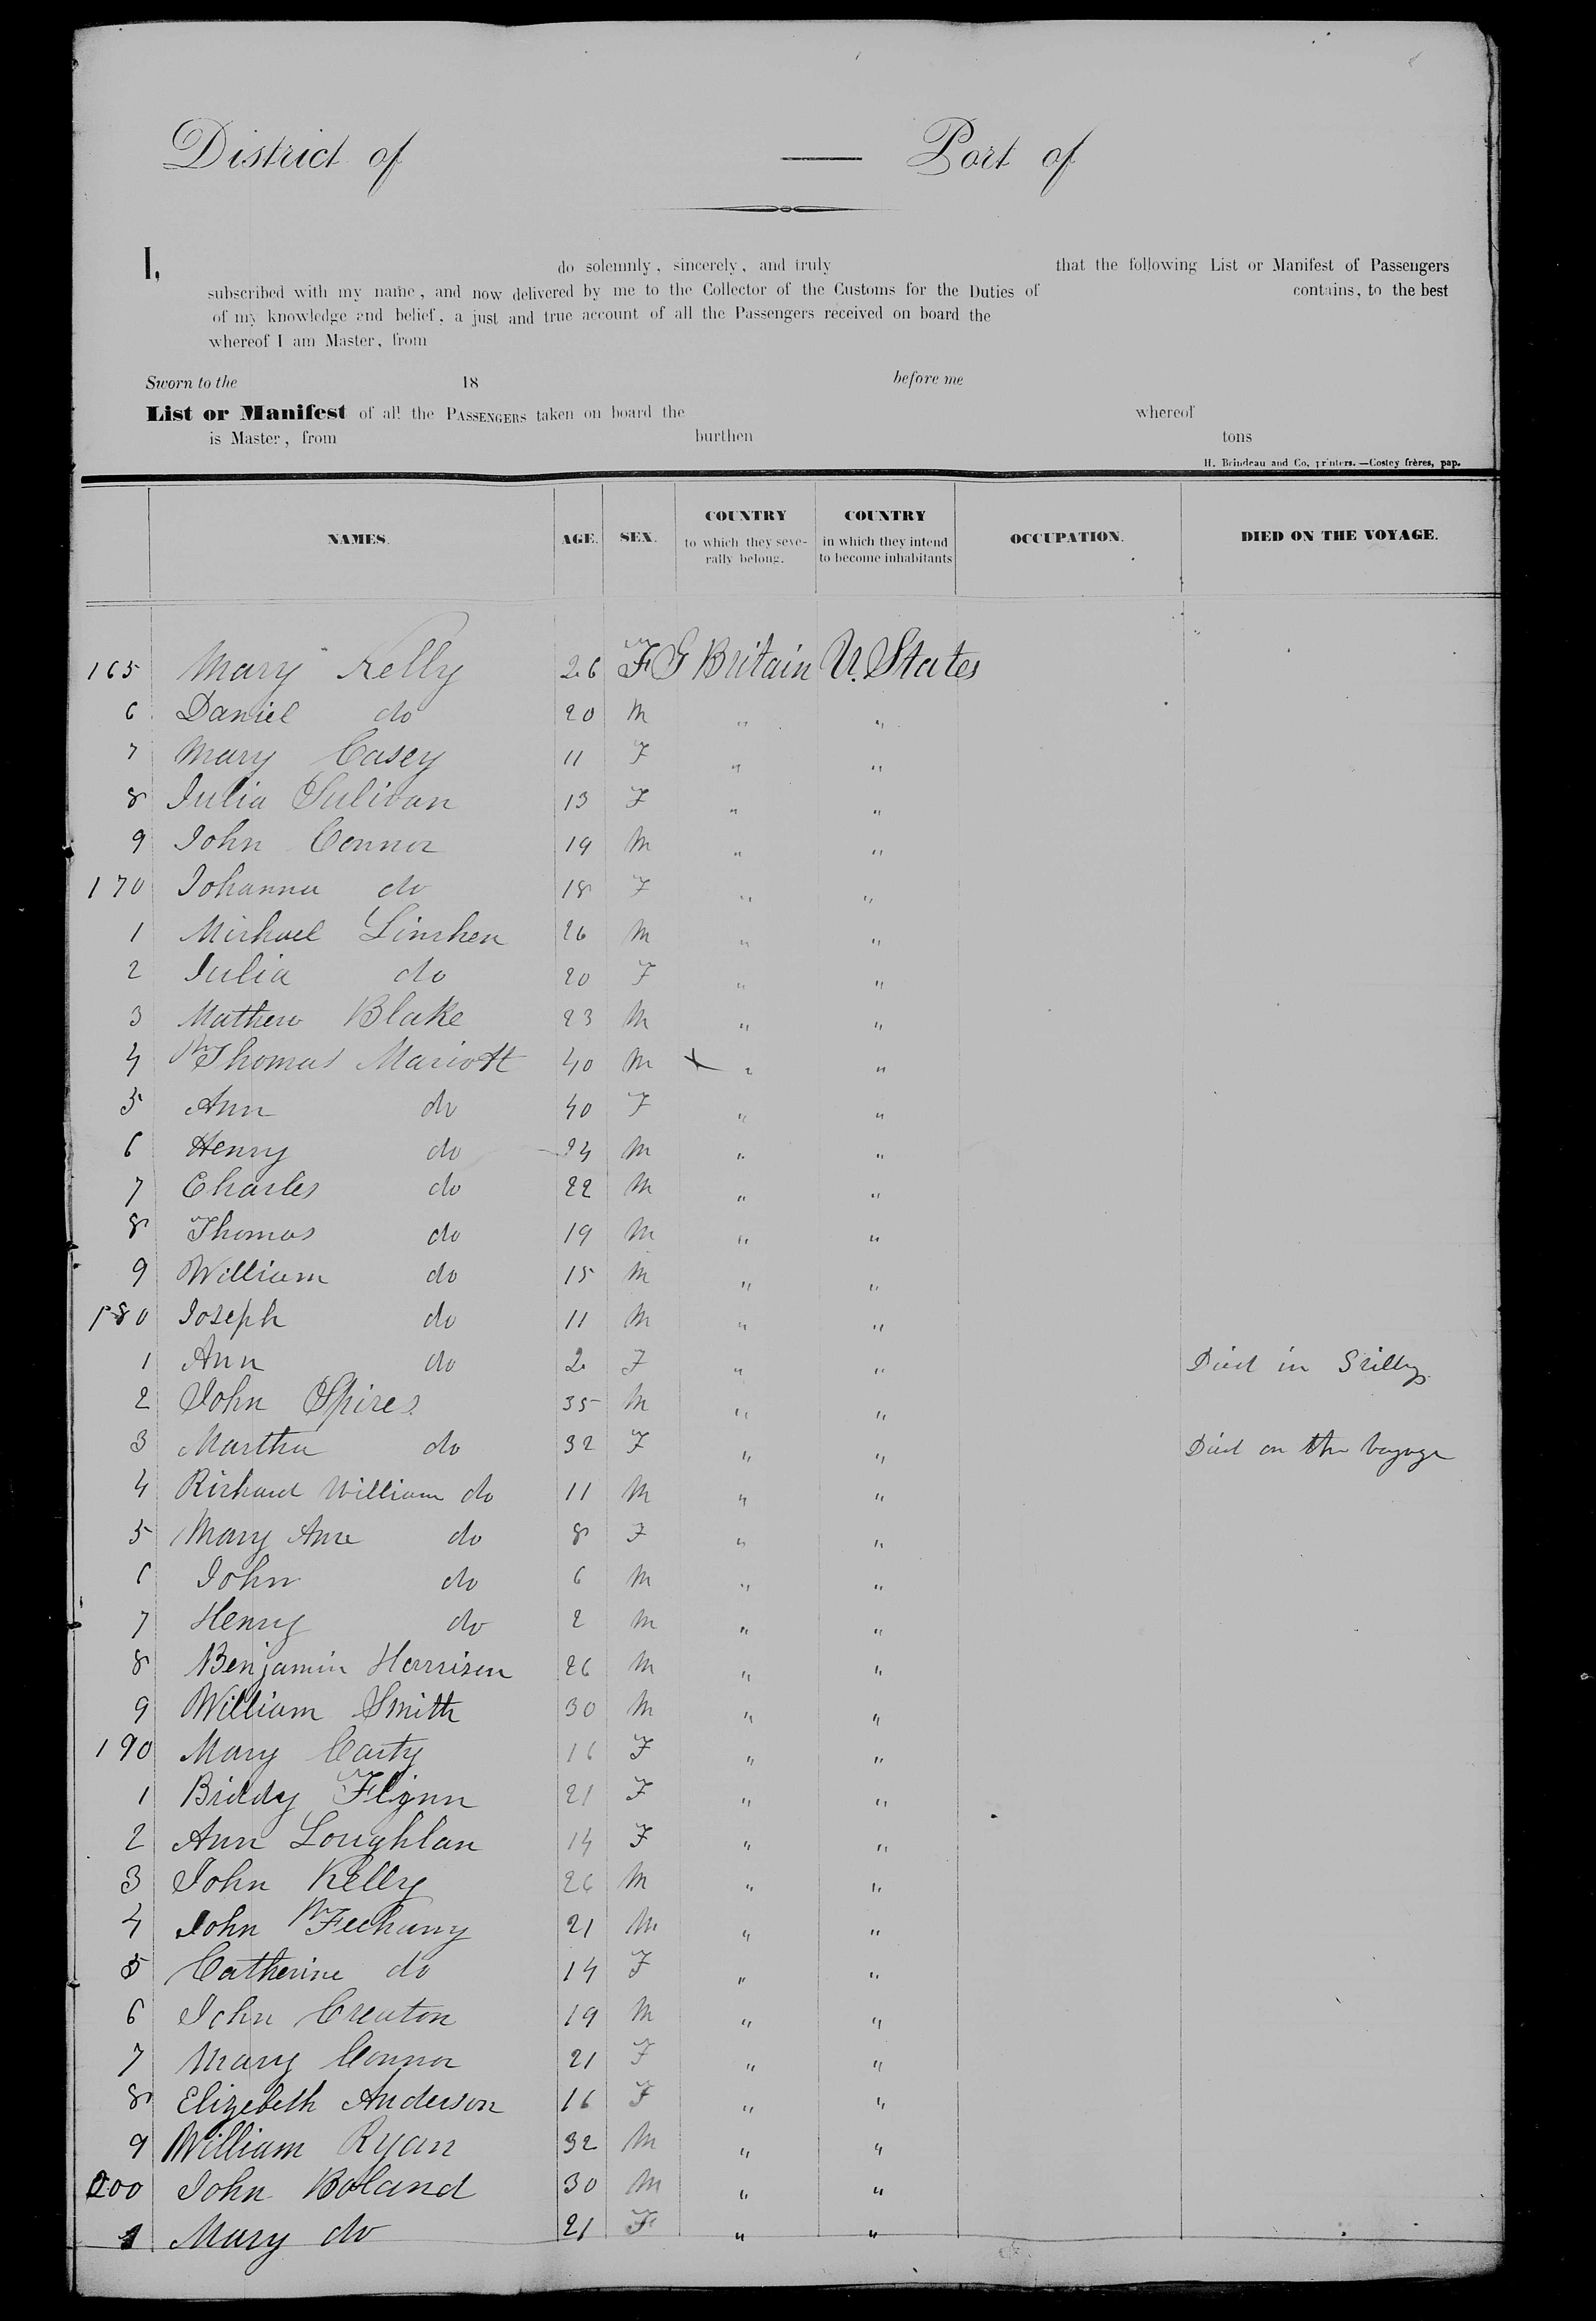 District of — Port of
I, do solemnly, sincerely, and truly that the following List or Manifest of Passengers
subscribed with my name, and now delivered by me to the Collector of the Customs for the Duties of contains, to the best
of my knowledge and belief, a just and true account of all the Passengers received on board the
whereof I am Master, from
Sworn to the 18 before me
List or Manifest of all the PASSENGERS taken on board the whereof
is Master, from burthen tons
H. Brindeau and Co, printers. —Costey frères, pap.
NAMES. AGE. SEX. COUNTRY to which they seve-rally belong. COUNTRY in which they intend to become inhabitants OCCUPATION. DIED ON THE VOYAGE.
165 Mary Kelly 26 F G Britain U. States
6 Daniel do 20 M " "
7 Mary Casey 11 F " "
8 Julia Sulivan 13 F " "
9 John Connor 19 M " "
170 Johanna do 18 F " "
1 Michael Linehen 26 M " "
2 Julia do 20 F " "
3 Mathew Blake 23 M " "
4 Thomas Mariott 40 M X " "
5 Ann do 40 F " "
6 Henry do 24 M " "
7 Charles do 22 M " "
8 Thomas do 19 M " "
9 William do 15 M " "
180 Joseph do 11 M " "
1 Ann do 2 F " " Died in Scilly
2 John Spires 35 M " "
3 Martha do 32 F " " Died on the Voyage
4 Richard William do 11 M " "
5 Mary Ann do 8 F " "
6 John do 6 M " "
7 Henry do 2 M " "
8 Benjamin Harrison 26 M " "
9 William Smith 30 M " "
190 Mary Carty 16 F " "
1 Biddy Flynn 21 F " "
2 Ann Loughlan 14 F " "
3 John Kelly 26 M " "
4 John 21 M " "
5 Catherine do 14 F " "
6 John Creaton 19 M " "
7 Mary Connor 21 F " "
8 Elizebeth Anderson 16 F " "
9 William Ryan 32 M " "
200 John Boland 30 M " "
1 Mary do 21 F " "